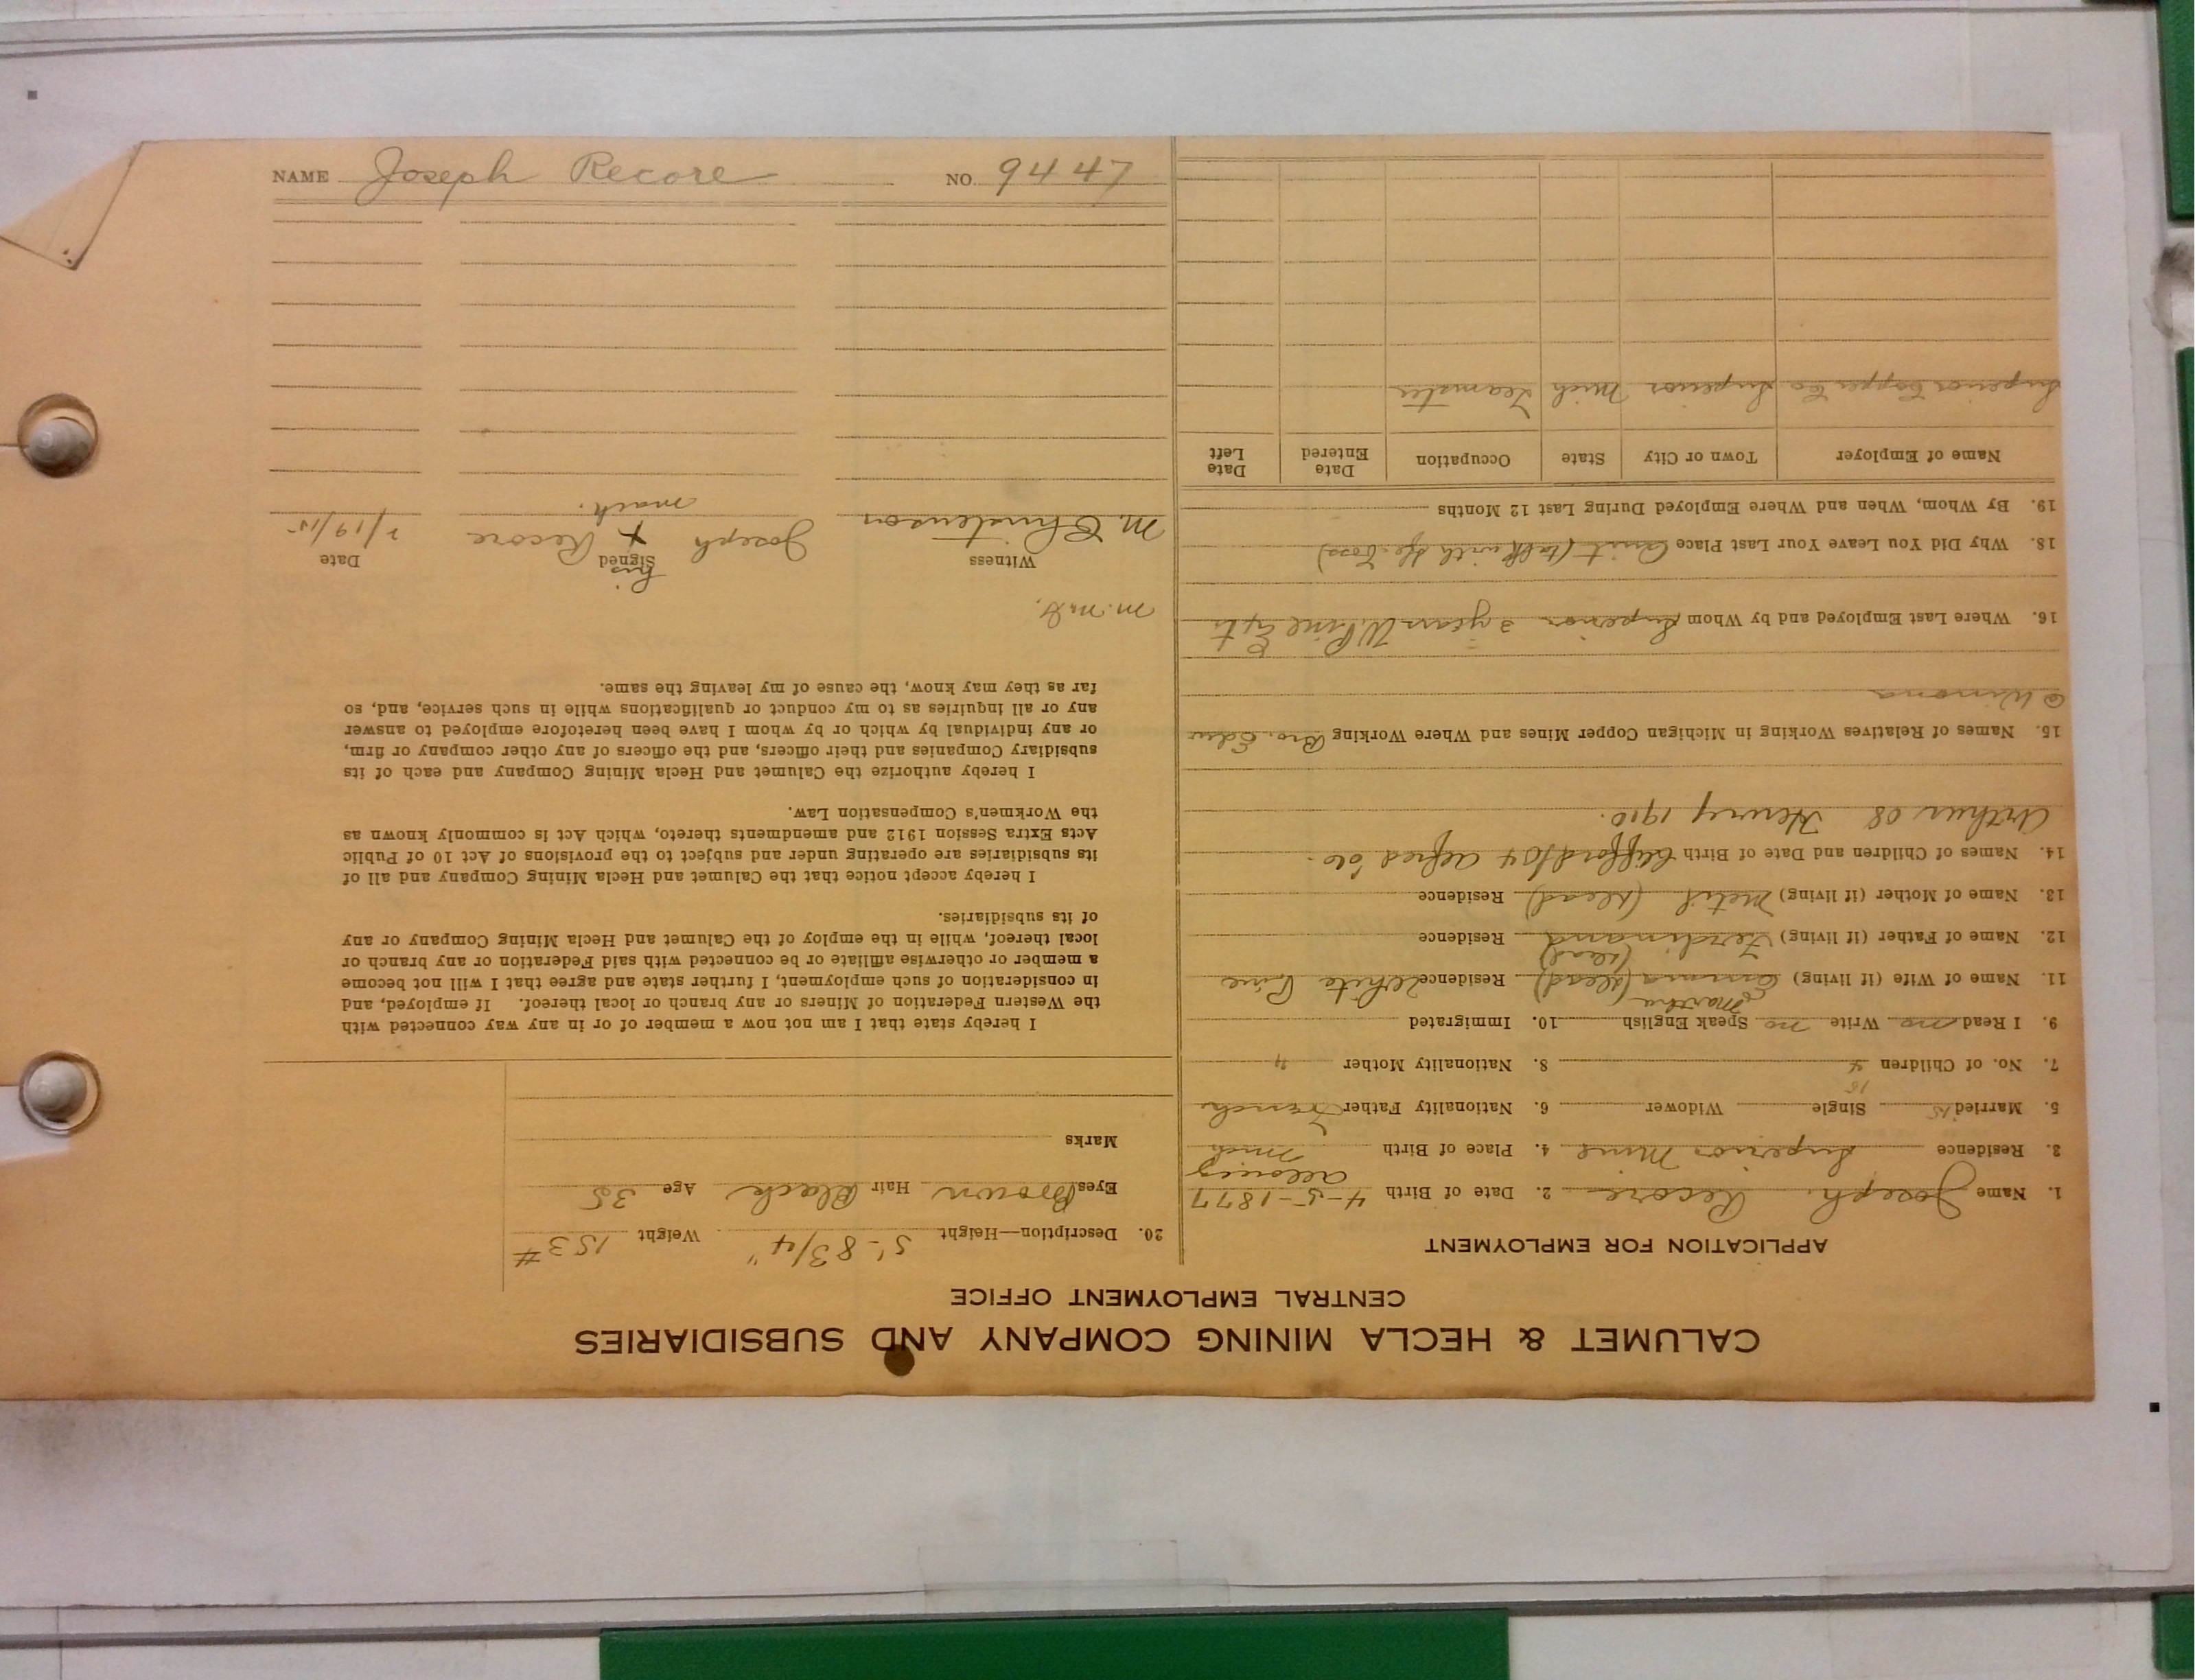 CALUMET & HECLA MINING COMPANY AND SUBSIDIARIES
CENTRAL EMPLOYMENT OFFICE
APPLICATION FOR EMPLOYMENT
1. Name Joseph. Recore 2. Date of Birth 4-5-1877
3. Residence Superior Mine 4. Place of Birth Mich
5. Married Single Widower 6. Nationality Father French
7. No. of Children 4 8. Nationality Mother "
9. I Read no Write no Speak English 10. Immigrated
Martha
11. Name of Wife (if living) (dead) Residence White Pine
12. Name of Father (if living) Ferdinand (dead) Residence
13. Name of Mother (if living) (dead) Residence
14. Names of Children and Date of Birth Clifford/04 Alfred 06.
Arthur 08 Henry 1910.
15. Names of Relatives Working in Michigan Copper Mines and Where Working Bro.
@ Winona
16. Where Last Employed and by Whom Superior 2 years W. Pine
18. Why Did You Leave Your Last Place Quit (talk with boss)
19. By Whom, When and Where Employed During Last 12 Months
Name of Employer Town or City State Occupation Date Entered Date Left
Superior Copper Co Superior Mich Teamster
20. Description—Height 5'-8 3/4" Weight 153#
Eyes Brown Hair Black Age 38
Marks
I hereby state that I am not now a member of or in any way connected with
the Western Federation of Miners or any branch or local thereof. If employed, and
in consideration of such employment, I further state and agree that I will not become
a member or otherwise affiliate or be connected with said Federation or any branch or
local thereof, while in the employ of the Calumet and Hecla Mining Company or any
of its subsidiaries.
I hereby accept notice that the Calumet and Hecla Mining Company and all of
its subsidiaries are operating under and subject to the provisions of Act 10 of Public
Acts Extra Session 1912 and amendments thereto, which Act is commonly known as
the Workmen's Compensation Law.
I hereby authorize the Calumet and Hecla Mining Company and each of its
subsidiary Companies and their officers, and the officers of any other company or firm,
or any individual by which or by whom I have been heretofore employed to answer
any or all inquiries as to my conduct or qualifications while in such service, and, so
far as they may know, the cause of my leaving the same.
Witness Signed Date
his
M. Christenson Joseph X Recore /19/15
mark.
NAME Joseph Recore NO. 9447